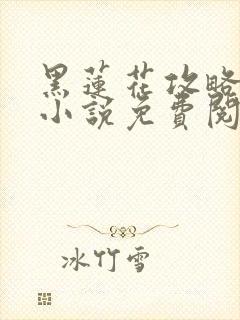 黑莲花攻略
小說免費閱
冰竹雪